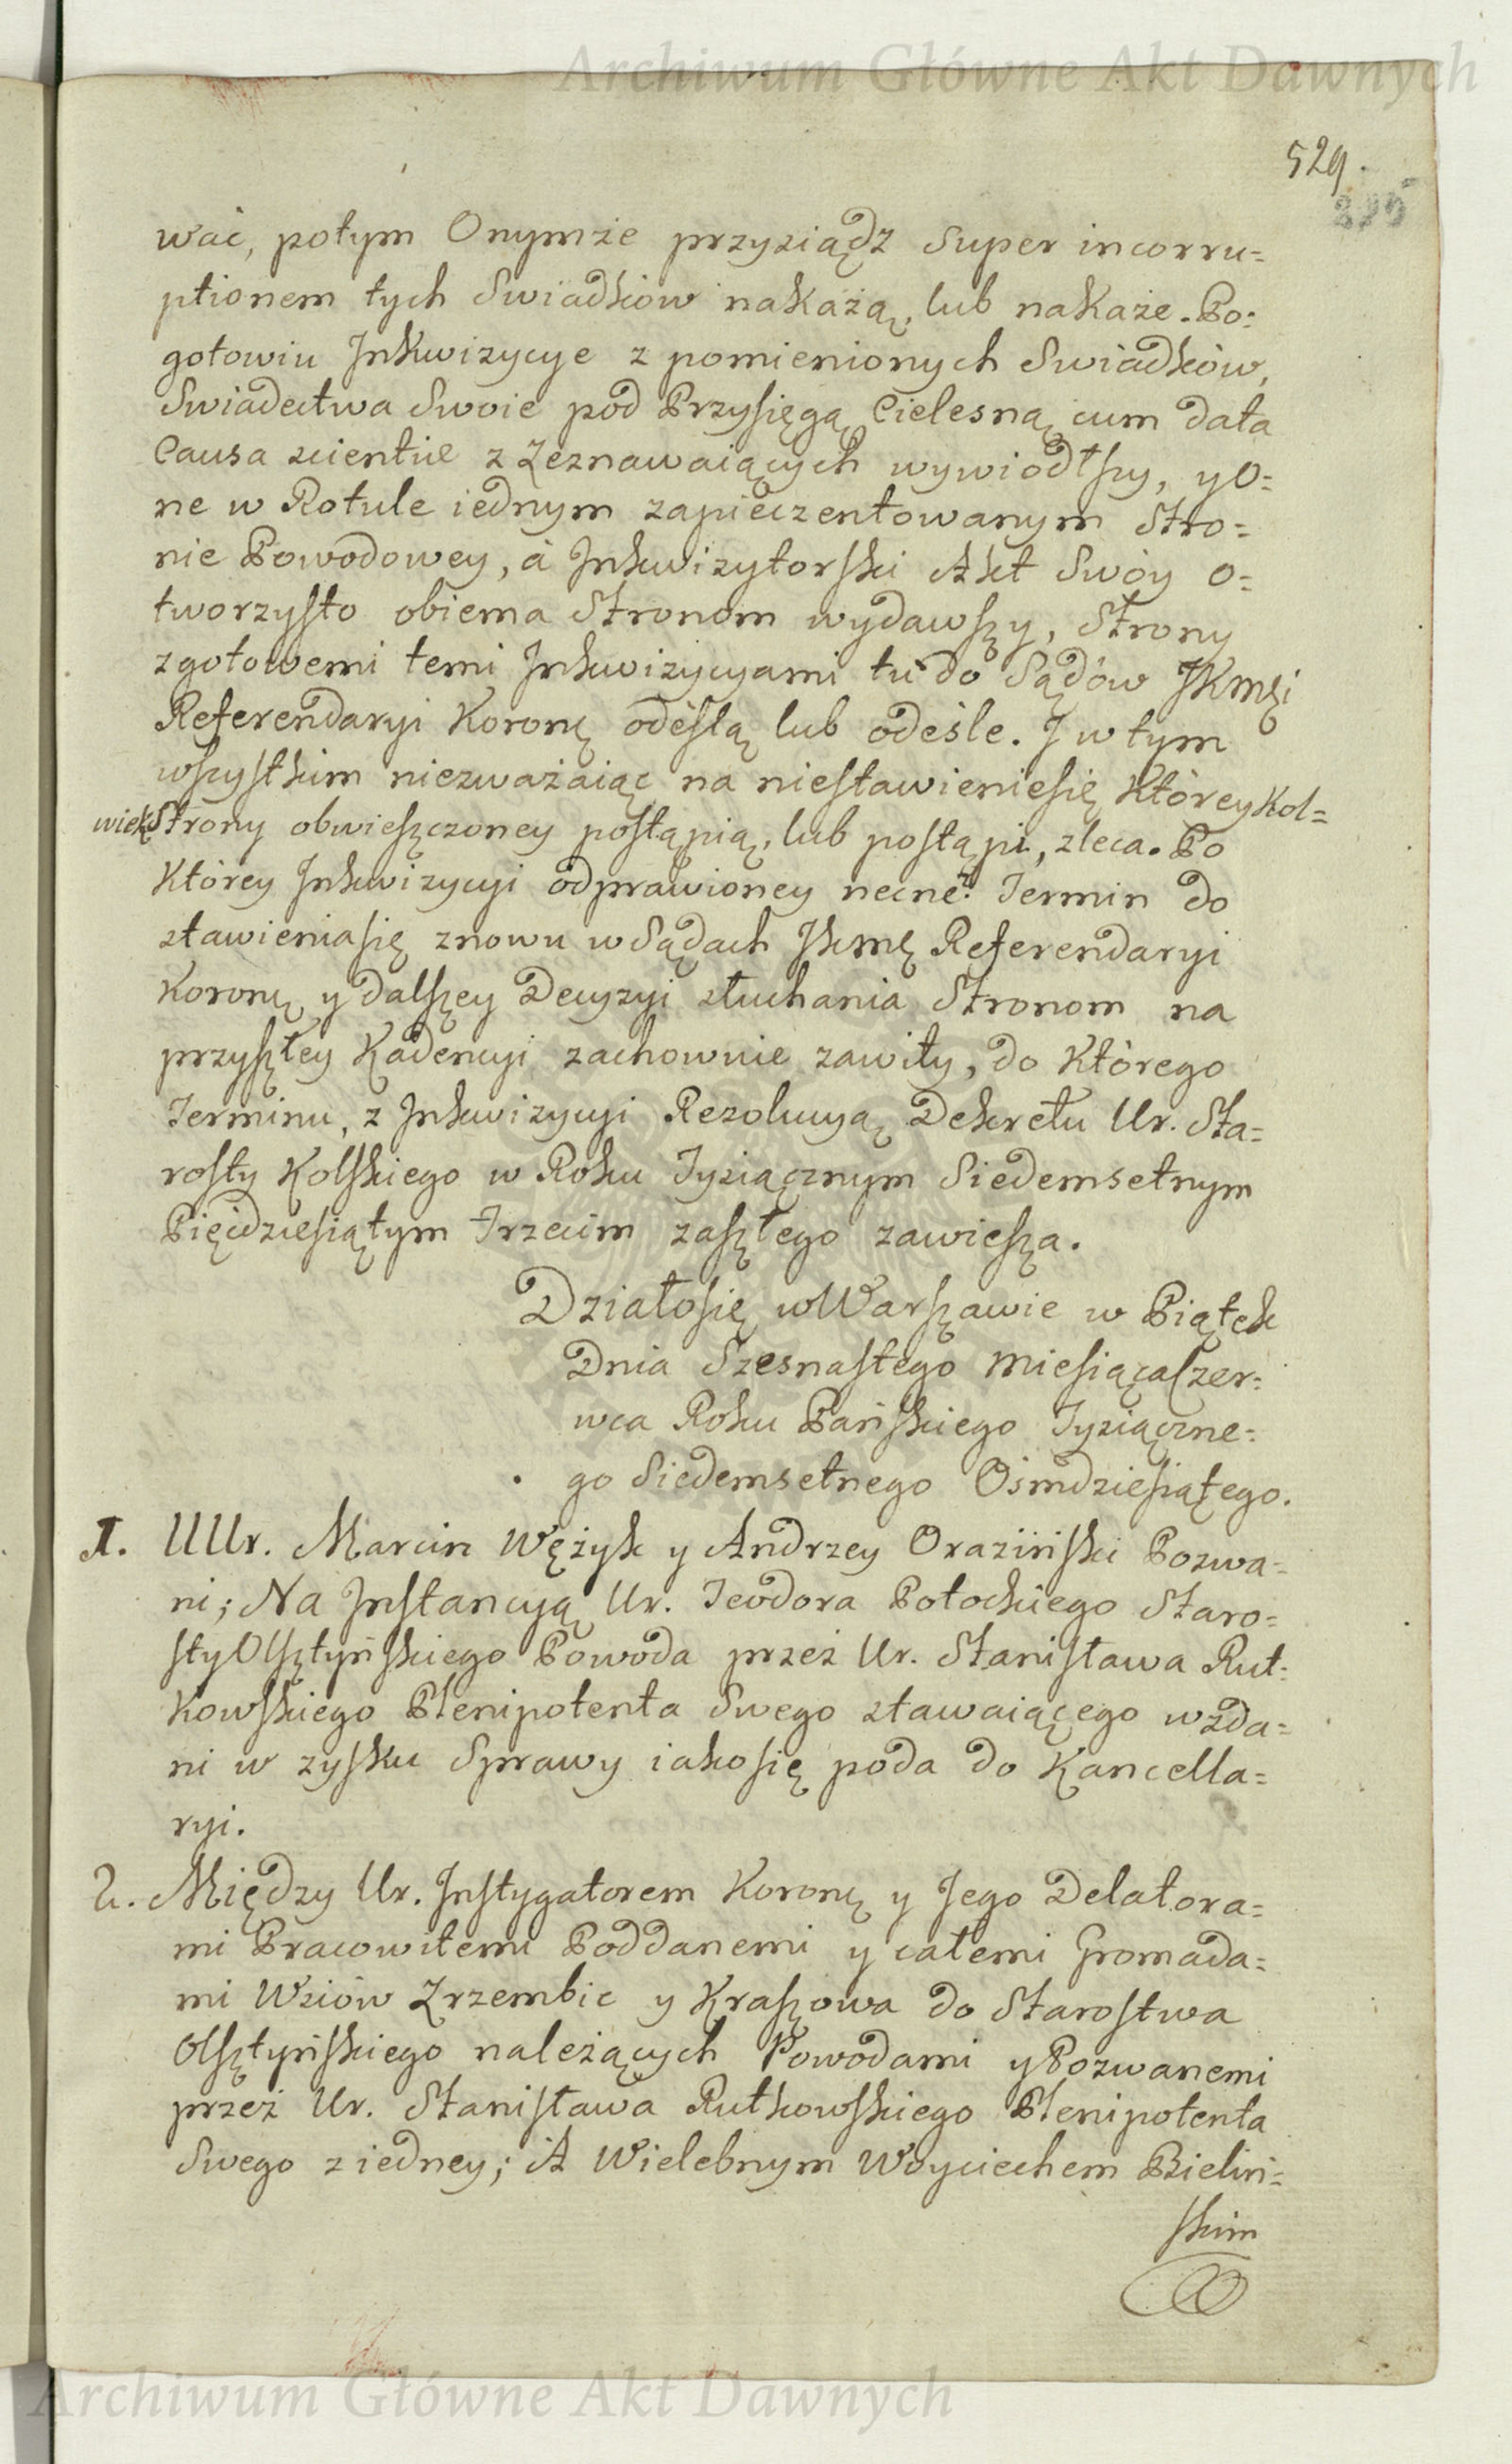 Archiwum Główne Akt Dawnych
529.
wać, potym Onymże przysiądz Super incorru=
ptionem tych Swiadków nakażą, lub nakaże. Po=
gotowiu Inkwizycye z pomienionych Swiadków,
Swiadectwa Swoie pod Przysięgą Cielesną cum data
Causa scientiæ z Zeznawaiących wywiodłszy, y O=
ne w Rotule iednym zapieczentowanym Stro=
nie Powodowey, á Inkwizytorski Akt Swóy o=
tworzysto obiema Stronom wydawszy, Strony
zgotowemi temi Inkwizycyami tu do Sądów JKMci
Referendaryi Koronę odeślą lub odeśle. J w tym
wszystkim niezważaiąc na niestawieniesię Którey Kol=
wiek Strony obwieszczoney postąpią, lub postąpi, zleca. Po
Którey Inkwizycyi odprawioney necne? Termin do
stawieniasię znowu w Sądach Jkmę Referendaryi
Koronę y dalszey Decyzyi słuchania Stronom na
przyszłey Kadencyi zachownie zawity, do Którego
Terminu, z Inkwizycyi Rezolucyą Dekretu Ur. Sta=
rosty Kolskiego w Roku Tysiącznym Siedemsetnym
Pięćdziesiątym Trzecim zaszłego zawiesza.
Działosię w Warszawie w Piątek
Dnia Szesnastego Miesiąca Czer=
wca Roku Pańskiego Tysiączne=
go Siedemsetnego Ośmdziesiątego.
1. UUr. Marcin Wężyk y Andrzey Oraziński Pozwa=
ni; Na Instancyą Ur. Teodora Potockiego Staro=
sty Olsztyńskiego Powoda przez Ur. Stanisława Rut=
kowskiego Plenipotenta Swego stawaiącego wzda=
ni w zysku Sprawy iakosię poda do Kancella=
ryi.
2. Między Ur. Instygatorem Koronę y Jego Delatora=
mi Pracowitemi Poddanemi y całemi Gromada=
mi Wsiów Zrzembic y Kraszowa do Starostwa
Olsztyńskiego należących Powodami y Pozwanemi
przez Ur. Stanisława Rutkowskiego Plenipotenta
Swego z iedney; A Wielebnym Woyciechem Bieliń=
skim
Archiwum Główne Akt Dawnych